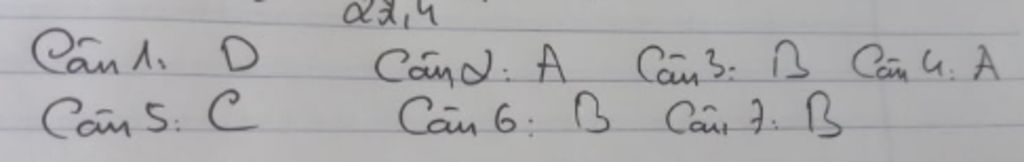 22,4
Câu 1. D Câu 2: A Câu 3: B Câu 4: A
Câu 5: C Câu 6: B Câu 7: B